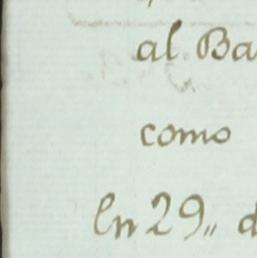 al Ba
como
En 29,, d